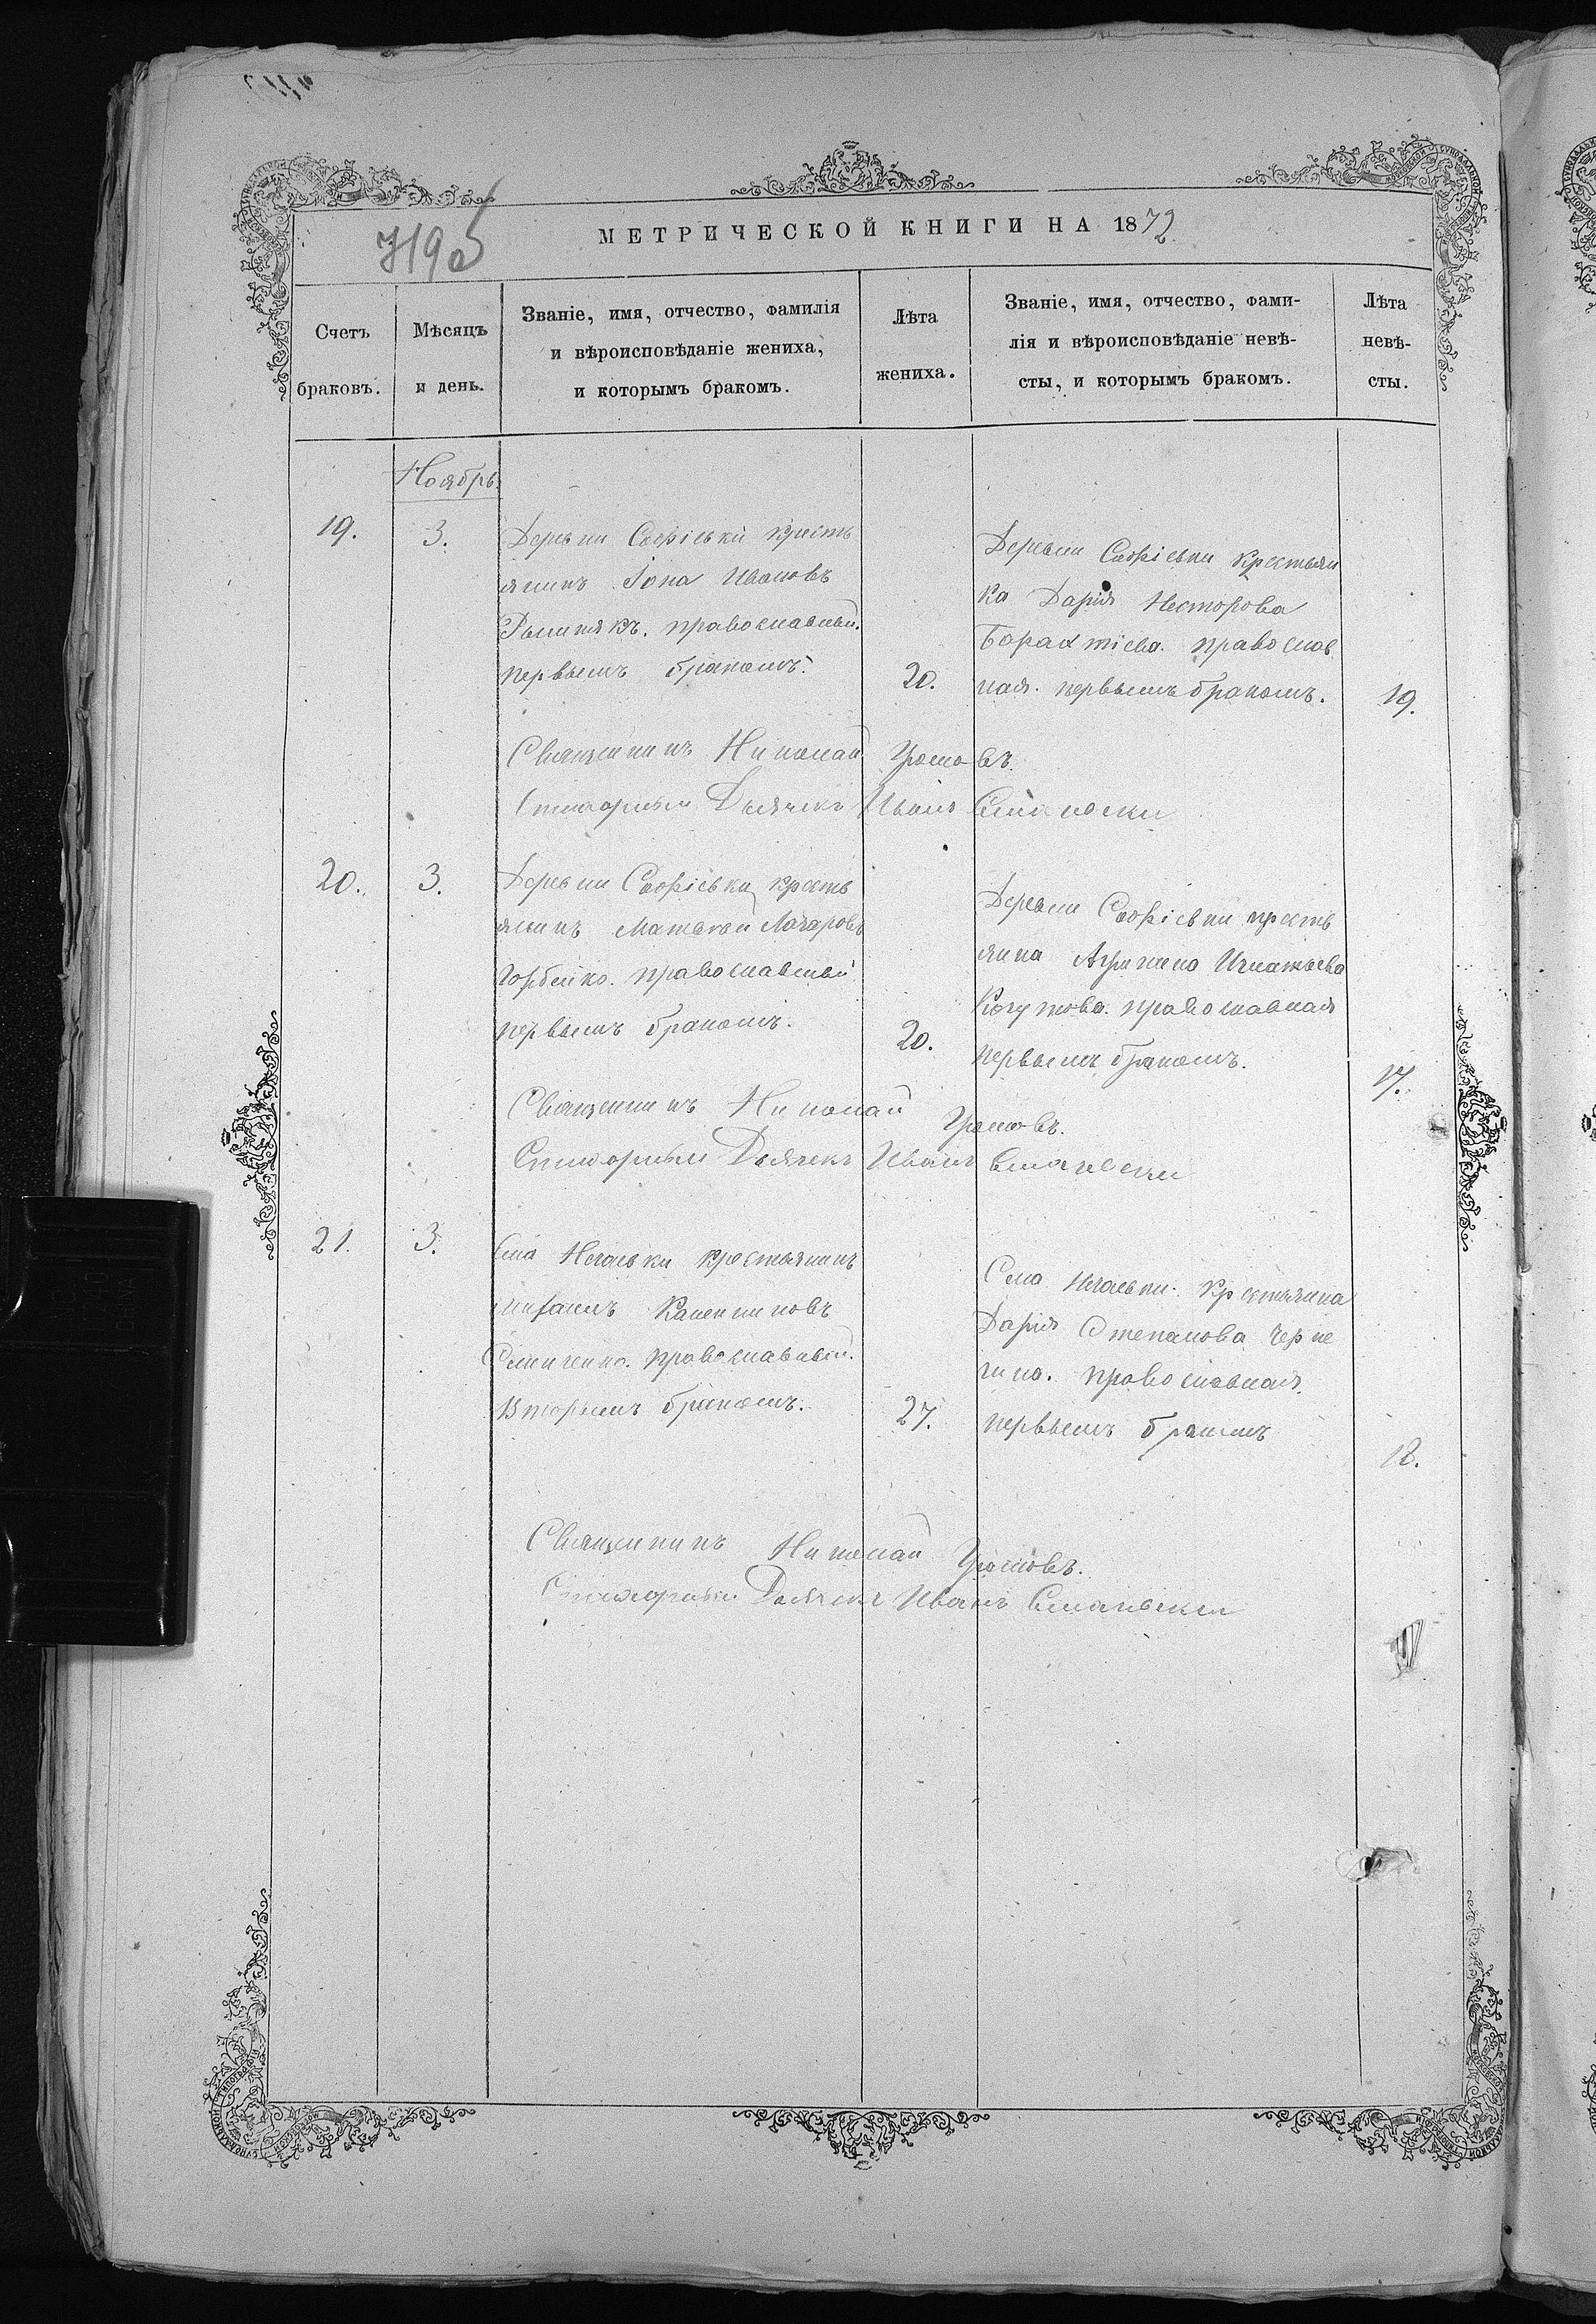 719об
МЕТРИЧЕСКОЙ КНИГИ НА 1872
Счетъ браковъ.
Мѣсяцъ и день.
Званіе, имя, отчество, фамилія
и вѣроисповѣданіе жениха,
и которымъ бракомъ.
Лѣта жениха.
Званіе, имя, отчество, фами-
лія и вѣроисповѣданіе невѣ-
сты, и которымъ бракомъ.
Лѣта невѣ-
сты.
Ноябрь.
19.
3.
Деревни Софіевки кресть
янинъ Іона Ивановъ
православный.
первымъ бракомъ.
20.
Деревни Софіевки крестьян
ка Дарія Несторова
Барахтіева. православ
ная. первымъ бракомъ.
19.
Священникъ Николай Громовъ.
Дьячекъ Иванъ
20.
3.
Деревни Софіевки кресть
янинъ Матвей Лазаровъ
Горбенко. православный
первымъ бракомъ.
20.
Деревни Софіевки кресть
янка Агрипина Игнатьева
Когутова. православная
первымъ бракомъ.
17.
Священникъ Николай Громовъ.
Дьячекъ Иванъ
21.
3.
Села Нечаевки крестьянинъ
Михаилъ
православный.
вторымъ бракомъ.
27.
Села Нечаевки крестьянка
Дарія Степанова
православная.
первымъ бракомъ
18.
Священникъ Николай Громовъ.
Дьячекъ Иванъ